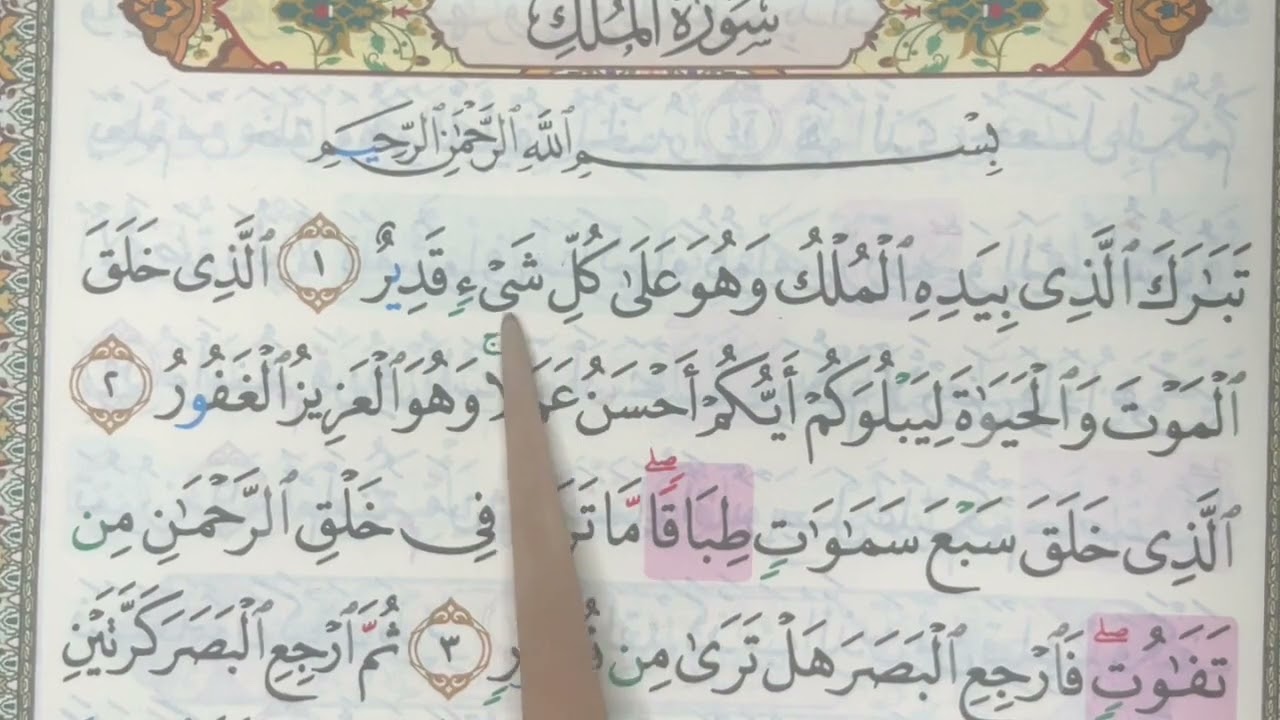 سُورَةُ الْمُلْكِ
بِسْمِ ٱللَّهِ ٱلرَّحْمَٰنِ ٱلرَّحِيمِ
تَبَٰرَكَ ٱلَّذِى بِيَدِهِ ٱلْمُلْكُ وَهُوَ عَلَىٰ كُلِّ شَىْءٍ قَدِيرٌ ١ ٱلَّذِى خَلَقَ
ٱلْمَوْتَ وَٱلْحَيَوٰةَ لِيَبْلُوَكُمْ أَيُّكُمْ أَحْسَنُ وَهُوَ ٱلْعَزِيزُ ٱلْغَفُورُ ٢
ٱلَّذِى خَلَقَ سَبْعَ سَمَٰوَٰتٍ طِبَاقًا ۖ مَّا فِى خَلْقِ ٱلرَّحْمَٰنِ مِن
تَفَٰوُتٍ ۖ فَٱرْجِعِ ٱلْبَصَرَ هَلْ تَرَىٰ مِن ٣ ثُمَّ ٱرْجِعِ ٱلْبَصَرَ كَرَّتَيْنِ